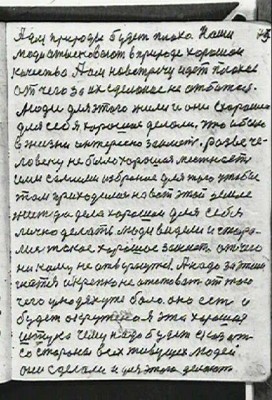 А для природы будет плохо. Наши
люди отыскивают в природе хорошою
качества Нам навстречу идет плохое
от чего за их сделанное не отбится.
Люди для этого жили и они старались
для себя хорошая делали. Это обыч
в жизни интересно занято. Разве че-
ловеку не было хорошая местность
или самими избранное для того чтобы
там приходилось на вот этой земле
и дела хорошая для себя
лично делать люди видели и
хорошое занять от чего
ни кому не отвернутся. А надо за
и крепко не отставать от того
чего у людях было. оно есть и
будет окружатся эта хорошая
штука чему надо будет сказать
со стороны всех живущих людей
они сделали и для этого делают